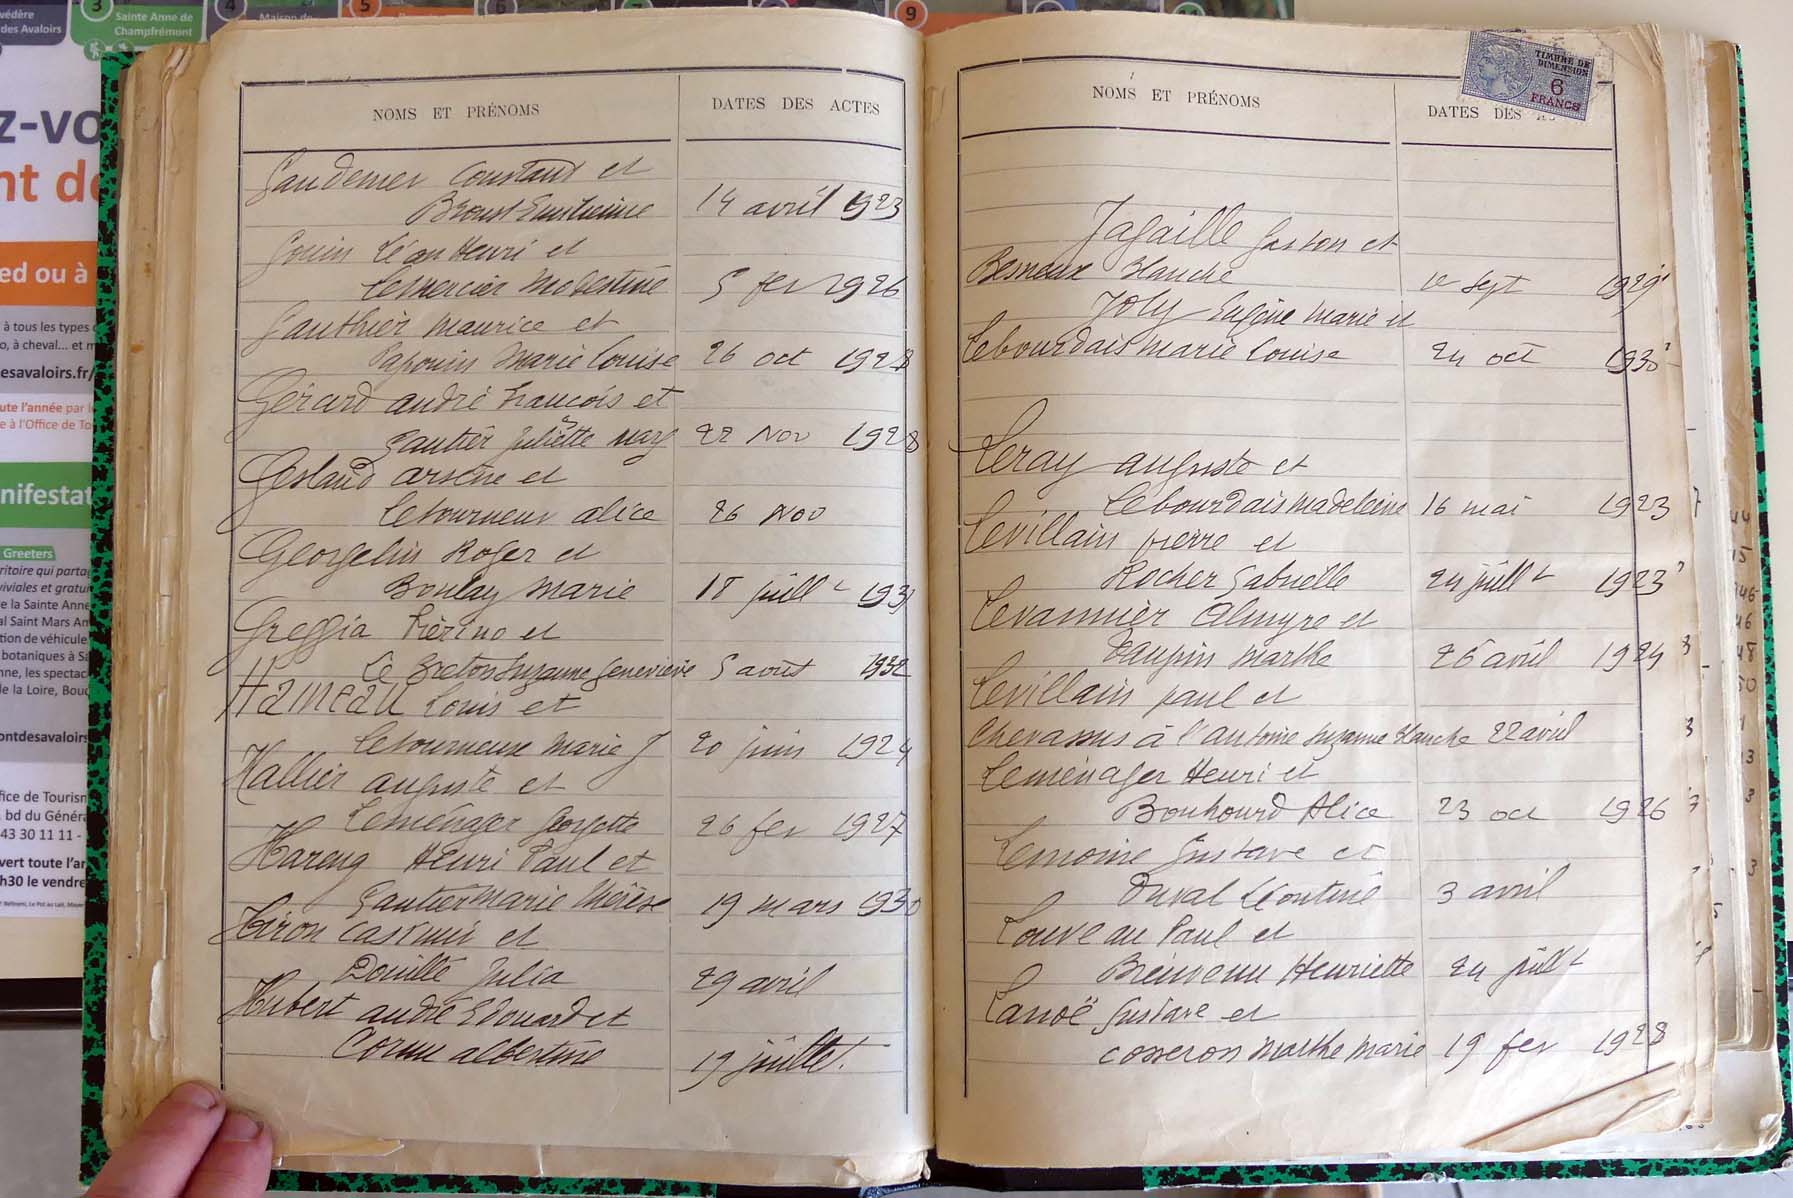 3
Sainte Anne de
Champfrémont
5
9
védère
des Avaloirs
z-vo
ed ou à
à tous les types
o, à cheval... et
esavaloirs.fr/
ute l'année par
e à l'Office de To
nifestat
Greeters
ritoire qui parta
viviales et gratui
e la Sainte Anne
al Saint Mars An
tion de véhicule
botaniques à Sa
nne, les spectac
de la Loire, Bou
ontdesavaloirs
fice de Tourism
bd du Généra
43 30 11 11 -
vert toute l'an
h30 le vendre
NOMS ET PRÉNOMS DATES DES ACTES
Gaudemer Constant et
14 avril 1923
Gouin Léon Henri et
Lemercier Modestine 5 fev 1926
Gauthier Maurice et
Marie Louise 26 oct 1928
Gérard andré François et
Gautier Juliette 22 Nov 1928
Gesland arsène et
Letourneur alice 26 Nov
Georgelin Roger et
Boulay Marie 18 juill t 193
Greggia Pièrino et
Le Breton Suzanne Geneviève 5 aout 1932
Hameau Louis et
Letourneux Marie J 20 juin 1924
Hallier auguste et
Leménager Georgette 26 fev 1927
Hareng Henri Paul et
Gautier Marie Thérèse 19 mars 1930
Hiron Casimir et
Douillé Julia 29 avril
Hubert andré Edouard et
Cornu albertine 19 juillet.
TIMBRE DE
DIMENSION
6
FRANCS
NOMS ET PRÉNOMS DATES DES A
Jagaille Gaston et
Besneux Blanche 1er sept 1929
Joly Eugène Marie et
Lebourdais Marie Louise 24 oct 1930
Leray auguste et
Lebourdais Madeleine 16 mai 1923
Levillain pierre et
Rocher Gabrielle 24 juill t 1923
Levannier Almyre et
Daupin Marthe 26 avril 1924
Levillain paul et
Chevassus à l'antoine Suzanne Blanche 22 avril
Leménager Henri et
Bouhourd Alice 23 oct 1926
Lemoine Gustave et
Duval Léontine 3 avril
Louveau Paul et
Bienvenu Henriette 24 juill t
Lanoë Gustave et
Cosseron Marthe Marie 19 fev 1928